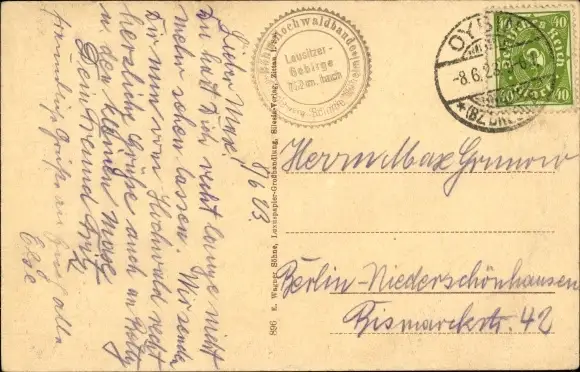 8/6 23.
Lieber Max!
Du hast Dich recht lange nicht
mehr sehen lassen. Wir senden
Dir nun vom Hochwald recht
herzliche Grüße auch an
u. den kleinen Max.
Dein Freund Fritz
Grüße an Euch alle
Else
Hochwaldbaude
Lausitzer-
Gebirge
752 m. hoch
OYBIN
-8.6.23
*(BZ.
40
40
Deutsches Reich
40
40
Herrn Max Grunow
Berlin-Niederschönhausen
Bismarckstr. 42
896 E. Wagner Söhne, Luxuspapier-Großhandlung, Silesia-Verlag, Zittau